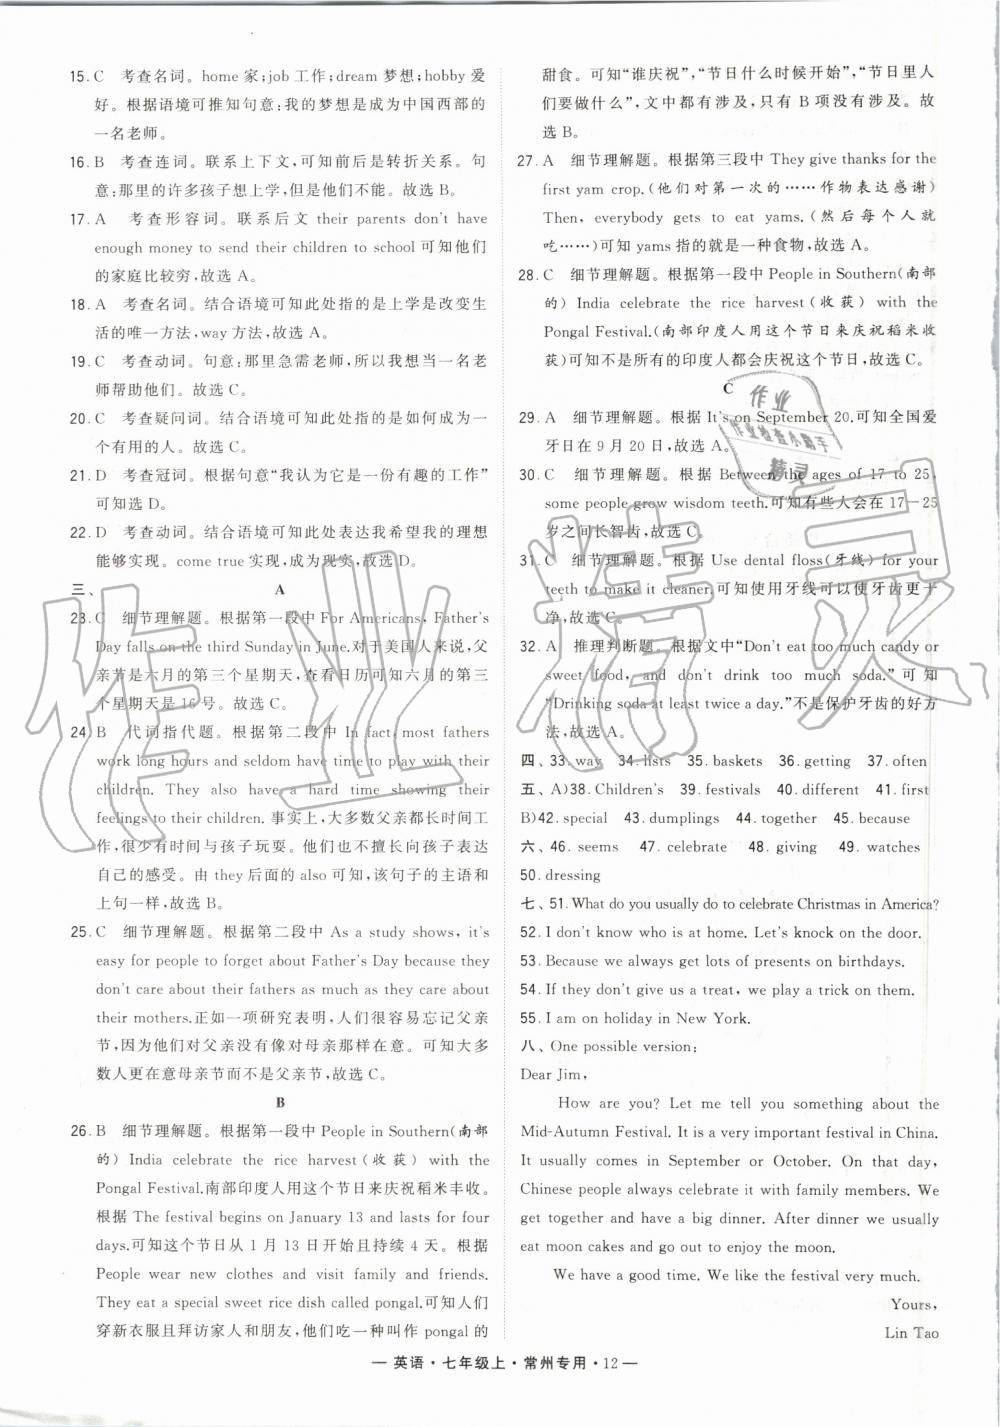 15. C 考查名词。home 家;job 工作;dream 梦想;hobby 爱
好。根据语境可推知句意:我的梦想是成为中国西部的
一名老师。
16. B 考查连词。联系上下文,可知前后是转折关系。句
意:那里的许多孩子想上学,但是他们不能。故选 B。
17. A 考查形容词。联系后文 their parents don't have
enough money to send their children to school 可知他们
的家庭比较穷,故选 A。
18. A 考查名词。结合语境可知此处指的是上学是改变生
活的唯一方法,way 方法,故选 A。
19. C 考查动词。句意:那里急需老师,所以我想成一名老
师帮助他们。故选 C。
20. C 考查疑问词。结合语境可知此处指的是如何成为一
个有用的人。故选 C。
21. D 考查冠词。根据句意“我认为它是一份有趣的工作”
可知选 D。
22. D 考查动词。结合语境可知此处表达我希望我的理想
能够实现。come true 实现,成为现实,故选 D。
三、 A
23. C 细节理解题。根据第一段中 For Americans, Father's
Day falls on the third Sunday in June.对于美国人来说,父
亲节是六月的第三个星期天,查看日历可知六月的第三
个星期天是 16 号。故选 C。
24. B 代词指代题。根据第二段中 In fact, most fathers
work long hours and seldom have time to play with their
children. They also have a hard time showing their
feelings to their children. 事实上,大多数父亲都长时间工
作,很少有时间与孩子玩耍。他们也不擅长向孩子表达
自己的感受。由 they 后面的 also 可知,该句子的主语和
上句一样,故选 B。
25. C 细节理解题。根据第二段中 As a study shows, it's
easy for people to forget about Father's Day because they
don't care about their fathers as much as they care about
their mothers.正如一项研究表明,人们很容易忘记父亲
节,因为他们对父亲没有像对母亲那样在意。可知大多
数人更在意母亲节而不是父亲节,故选 C。
B
26. B 细节理解题。根据第一段中 People in Southern(南部
的) India celebrate the rice harvest(收获) with the
Pongal Festival.南部印度人用这个节日来庆祝稻米丰收。
根据 The festival begins on January 13 and lasts for four
days.可知这个节日从 1 月 13 日开始且持续 4 天。根据
People wear new clothes and visit family and friends.
They eat a special sweet rice dish called pongal.可知人们
穿新衣服且拜访家人和朋友,他们吃一种叫作 pongal 的
甜食。可知“谁庆祝”,“节日什么时候开始”,“节日里人
们要做什么”,文中都有涉及,只有 B 项没有涉及。故
选 B。
27. A 细节理解题。根据第三段中 They give thanks for the
first yam crop.(他们对第一次的……作物表达感谢)
Then, everybody gets to eat yams.(然后每个人就
吃……)可知 yams 指的就是一种食物,故选 A。
28. C 细节理解题。根据第一段中 People in Southern(南部
的) India celebrate the rice harvest(收获) with the
Pongal Festival.(南部印度人用这个节日来庆祝稻米收
获)可知不是所有的印度人都会庆祝这个节日,故选 C。
C
29. A 细节理解题。根据 It's on September 20.可知全国爱
牙日在 9 月 20 日,故选 A。
30. C 细节理解题。根据 Between the ages of 17 to 25,
some people grow wisdom teeth.可知有些人会在 17—25
岁之间长智齿,故选 C。
31. C 细节理解题。根据 Use dental floss(牙线) for your
teeth to make it cleaner.可知使用牙线可以使牙齿更干
净,故选 C。
32. A 推理判断题。根据文中“Don't eat too much candy or
sweet food, and don't drink too much soda.”可知
“Drinking soda at least twice a day.”不是保护牙齿的好方
法,故选 A。
四、33. way 34. lists 35. baskets 36. getting 37. often
五、A)38. Children's 39. festivals 40. different 41. first
B)42. special 43. dumplings 44. together 45. because
六、46. seems 47. celebrate 48. giving 49. watches
50. dressing
七、51. What do you usually do to celebrate Christmas in America?
52. I don't know who is at home. Let's knock on the door.
53. Because we always get lots of presents on birthdays.
54. If they don't give us a treat, we play a trick on them.
55. I am on holiday in New York.
八、One possible version:
Dear Jim,
How are you? Let me tell you something about the
Mid-Autumn Festival. It is a very important festival in China.
It usually comes in September or October. On that day,
Chinese people always celebrate it with family members. We
get together and have a big dinner. After dinner we usually
eat moon cakes and go out to enjoy the moon.
We have a good time. We like the festival very much.
Yours,
Lin Tao
— 英语·七年级上·常州专用·12 —
作业
作业检查小助手
精灵
作业精灵